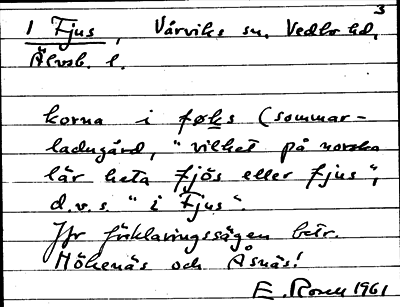 3
1 Fjus, Vårviks sn. Vedbo hd.
Älvsb. l.
korna i føks (sommar-
ladugård, "vilket på norska
lär heta fjös eller fjus",
d.v.s. "i Fjus".
Jfr förklaringssägen betr.
Hökenäs och Åsnäs!
E. 1961